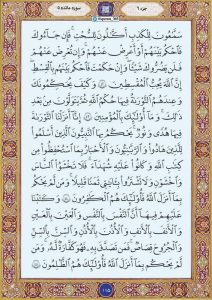 جزء ٦
سوره مائده ٥
سَمَّٰعُونَ لِلْكَذِبِ أَكَّٰلُونَ لِلسُّحْتِ فَإِن جَآءُوكَ
فَٱحْكُم بَيْنَهُمْ أَوْ أَعْرِضْ عَنْهُمْ وَإِن تُعْرِضْ عَنْهُمْ
فَلَن يَضُرُّوكَ شَيْـًٔا وَإِنْ حَكَمْتَ فَٱحْكُم بَيْنَهُم بِٱلْقِسْطِ
إِنَّ ٱللَّهَ يُحِبُّ ٱلْمُقْسِطِينَ ٤٢ وَكَيْفَ يُحَكِّمُونَكَ
وَعِندَهُمُ ٱلتَّوْرَىٰةُ فِيهَا حُكْمُ ٱللَّهِ ثُمَّ يَتَوَلَّوْنَ مِنۢ بَعْدِ
ذَٰلِكَ وَمَآ أُو۟لَٰٓئِكَ بِٱلْمُؤْمِنِينَ ٤٣ إِنَّآ أَنزَلْنَا ٱلتَّوْرَىٰةَ
فِيهَا هُدًى وَنُورٌ يَحْكُمُ بِهَا ٱلنَّبِيُّونَ ٱلَّذِينَ أَسْلَمُوا۟
لِلَّذِينَ هَادُوا۟ وَٱلرَّبَّٰنِيُّونَ وَٱلْأَحْبَارُ بِمَا ٱسْتُحْفِظُوا۟ مِن
كِتَٰبِ ٱللَّهِ وَكَانُوا۟ عَلَيْهِ شُهَدَآءَ فَلَا تَخْشَوُا۟ ٱلنَّاسَ
وَٱخْشَوْنِ وَلَا تَشْتَرُوا۟ بِـَٔايَٰتِي ثَمَنًا قَلِيلًا وَمَن لَّمْ يَحْكُم
بِمَآ أَنزَلَ ٱللَّهُ فَأُو۟لَٰٓئِكَ هُمُ ٱلْكَٰفِرُونَ ٤٤ وَكَتَبْنَا
عَلَيْهِمْ فِيهَآ أَنَّ ٱلنَّفْسَ بِٱلنَّفْسِ وَٱلْعَيْنَ بِٱلْعَيْنِ
وَٱلْأَنفَ بِٱلْأَنفِ وَٱلْأُذُنَ بِٱلْأُذُنِ وَٱلسِّنَّ بِٱلسِّنِّ
وَٱلْجُرُوحَ قِصَاصٌ فَمَن تَصَدَّقَ بِهِ فَهُوَ كَفَّارَةٌ لَّهُ وَمَن
لَّمْ يَحْكُم بِمَآ أَنزَلَ ٱللَّهُ فَأُو۟لَٰٓئِكَ هُمُ ٱلظَّٰلِمُونَ ٤٥
١١٥